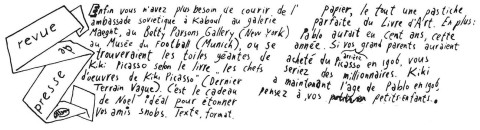 revue
de
presse
Enfin vous n'avez plus besoin de courir de l'
ambassade sovietique à Kaboul au galerie
Maeght, au Betty Parsons Gallery (New York)
au Musée du Football (Munich), ou se
trouveraient les toiles géantes de
Kiki Picasso selon le livre "les chefs
d'oeuvres de Kiki Picasso" (Dernier
Terrain Vague). C'est le cadeau
de Noel idéal pour étonner
vos amis snobs. Texte, format,
papier, le tout une pastiche
parfaite du Livre d'Art. En plus:
Pablo aurait eu cent ans, cette
année. Si vos grand parents auraient
acheté du Picasso en 1906, vous
seriez des millionaires. Kiki
a maintenant l'age de Pablo en 1906,
pensez à vos petit enfants.